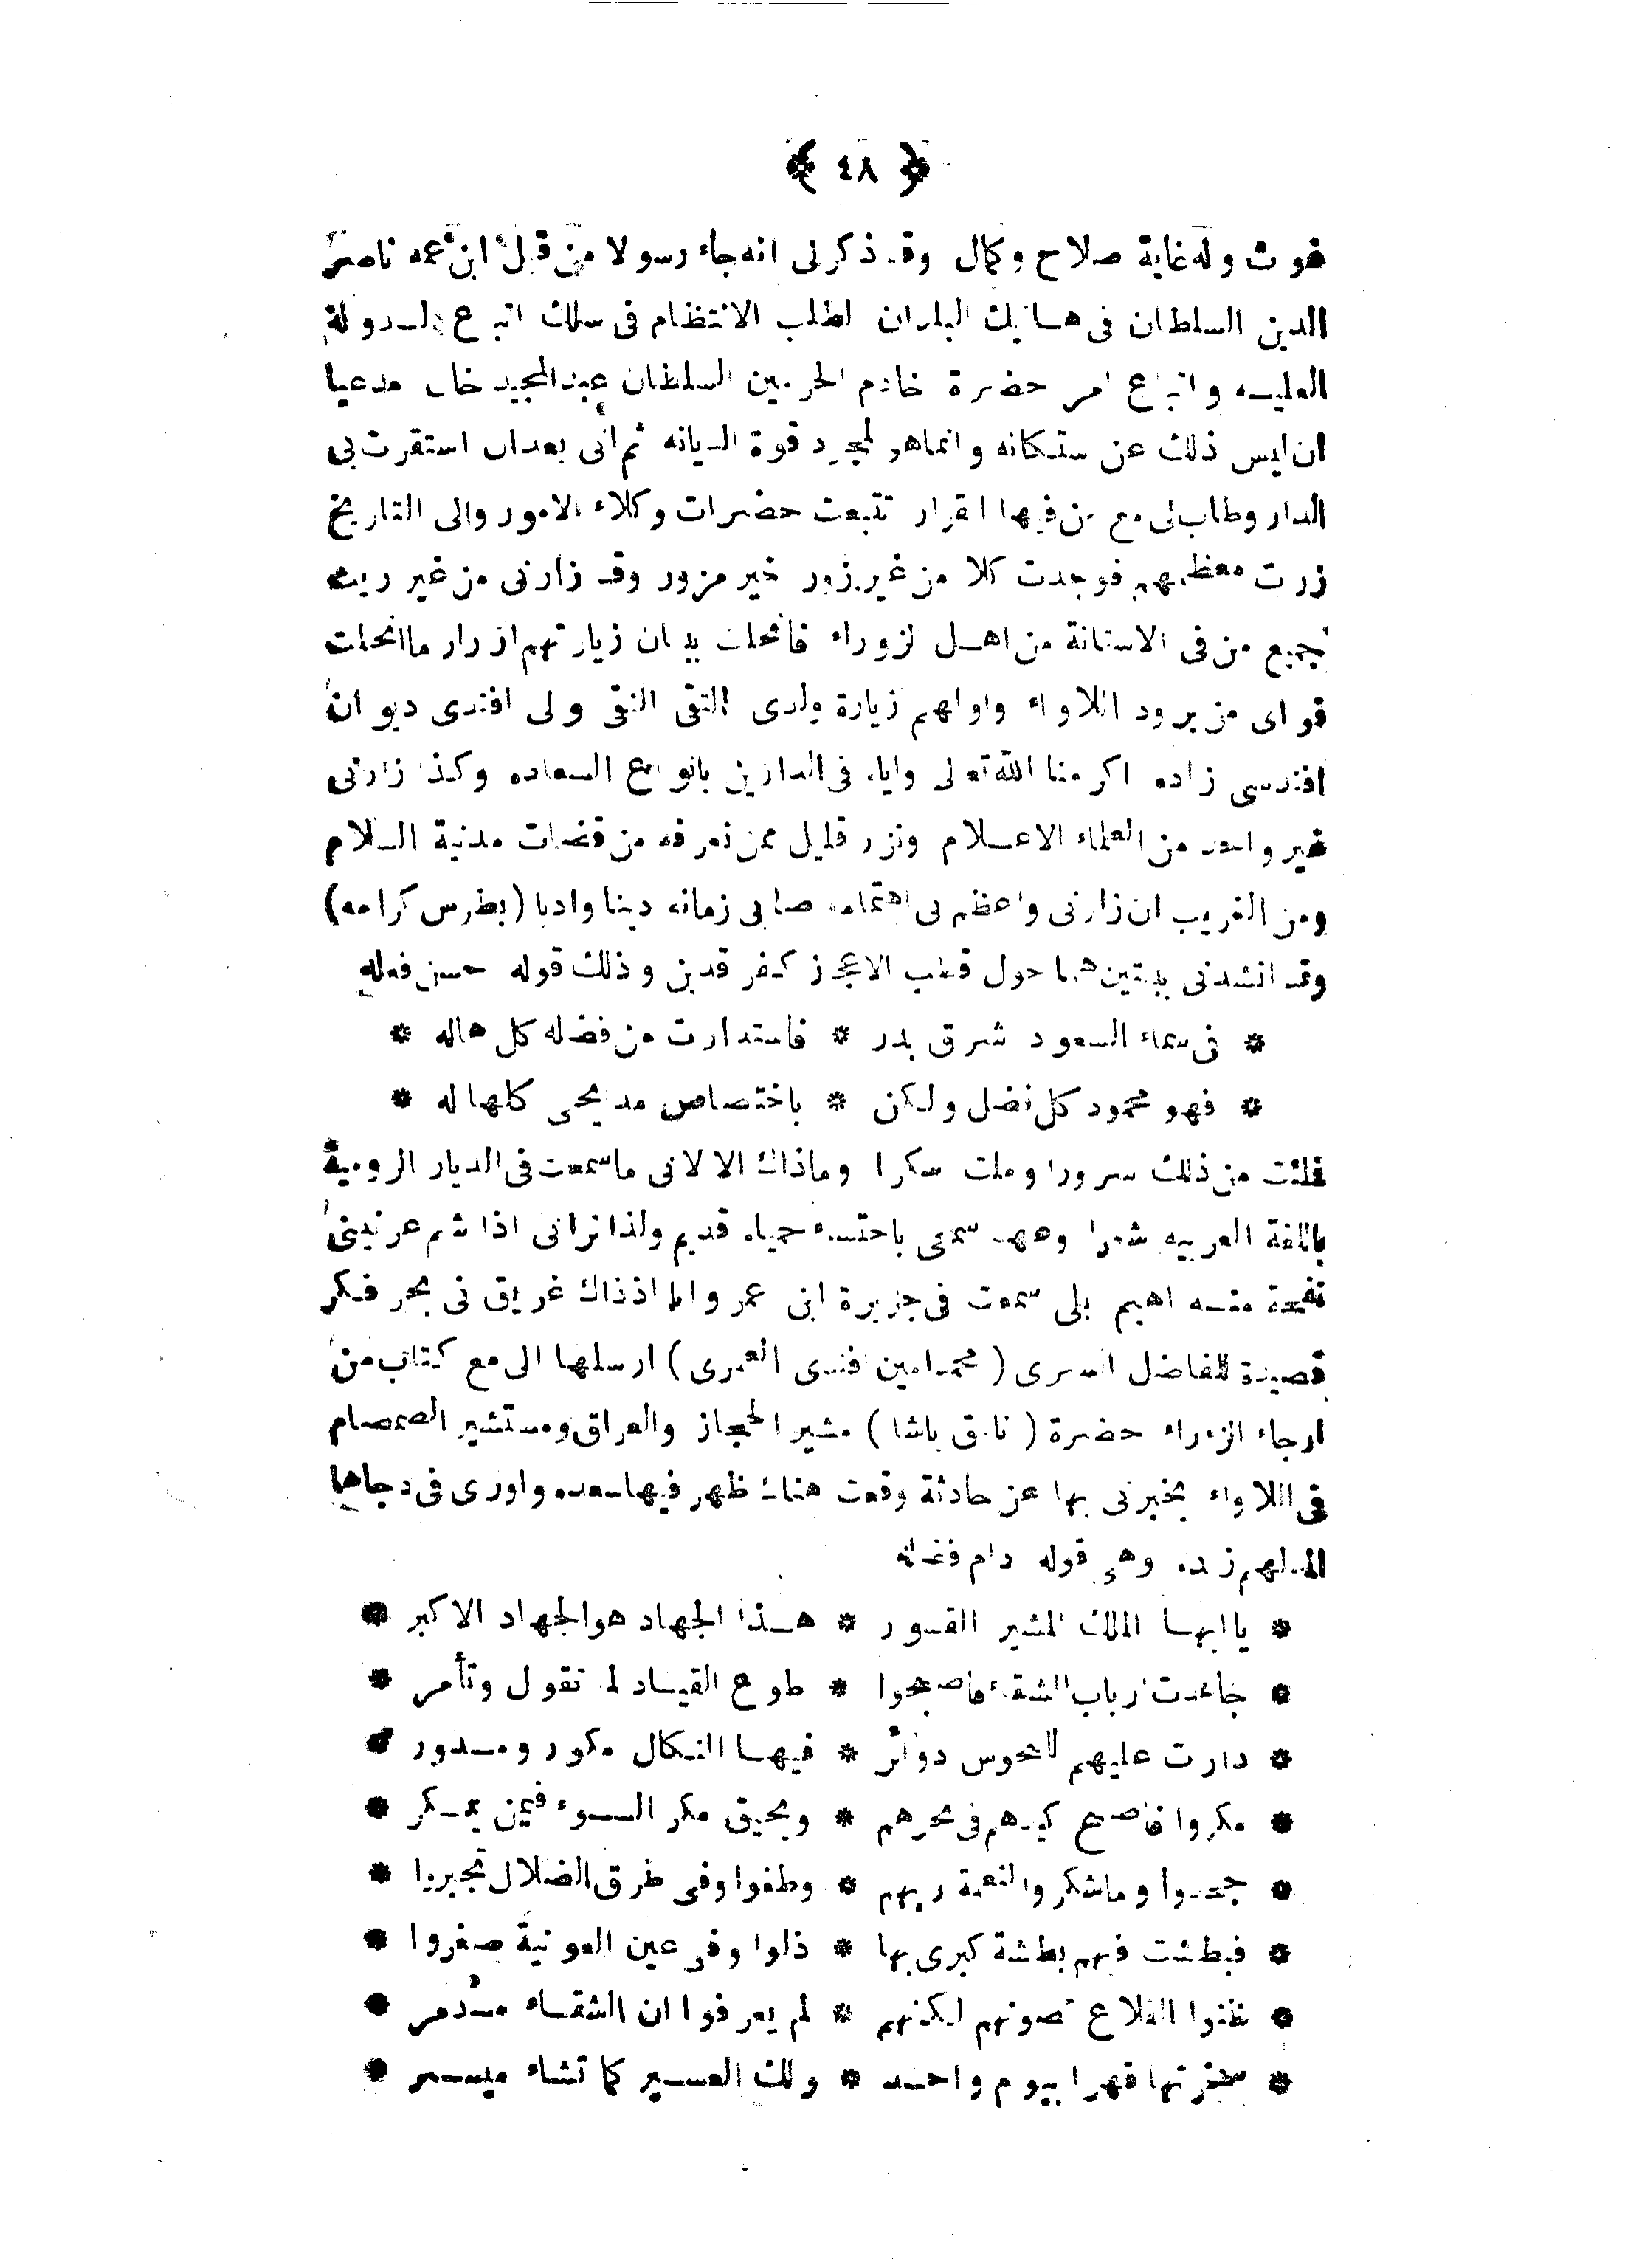 ﴿ ٤٨ ﴾
غوث وله غاية صلاح وكمال وقد ذكر لى انه جاء رسولا من قبل ابن عمه ناصر
الدين السلطان فى هاتيك البلدان لطلب الانتظام فى سلك اتباع الدولة
العليه واتباع امر حضرة خادم الحرمين السلطان عبدالمجيد خان مدعيا
ان ليس ذلك عن ستكانه وانماهو لمجرد قوة الديانه ثم انى بعدان استقرت بى
الدار وطاب لى مع من فيها القرار تتبعت حضرات وكلاء الامور والى التاريخ
زرت معظمهم فوجدت كلا من غير زور خير مزور وقد زارنى من غير ريث
جميع من فى الاستانة من اهل الزوراء فانحلت بيد ان زيارتهم ازرار ما انحلت
قواى من برود اللاواء واولهم زيارة ولدى التقى النقى ولى افندى ديوان
افندسى زاده اكرمنا الله تعالى واياه فى الدارين بانواع السعاده وكذا زارنى
غير واحد من العلماء الاعلام ونزر قليل ممن نعرفه من قضات مدنية السلام
ومن الغريب ان زارنى واعظم بى اهتمامه صابى زمانه دينا وادبا (بطرس كرامه)
وقد انشدنى بيتين هما حول قطب الاعجاز كفرقدين وذلك قوله حسن فعله
* فى سماء السعود شرق بدر * فاستدارت من فضله كل هاله *
* فهو محمود كل فضل ولكن * باختصاص مديحى كلها له *
فملئت من ذلك سرورا وملت سكرا وماذاك الا لانى ماسمعت فى الديار الرومية
باللغة العربيه شعرا وعهد سمعى باحتساء حمياه قديم ولذا ترانى اذا شم عرنينى
نفحة منه اهيم بلى سمعت فى جزيرة ابن عمر وانا اذذاك غريق فى بحر فكر
قصيدة للفاضل السرى (محمدامين افندى العمرى) ارسلها الى مع كتاب من
ارجاء الزوراء حضرة (نامق باشا) مشير الحجاز والعراق ومستشير الصمصام
فى اللاواء يخبرنى بها عن حادثة وقعت هناك ظهر فيها سعده واورى فى دجاها
المدلهم زنده وهى قوله دام فضله
* ياايها الملك المشير القسور * هذا الجهاد هوالجهاد الاكبر *
* جاهدت ارباب الشقاء فاصبحوا * طوع القياد لما تقول وتأمر *
* دارت عليهم للنحوس دوائر * فيها النكال مكور ومدور *
* مكروا فاصبح كيدهم فى نحرهم * ويحيق مكر السوء فيمن يمكر *
* جحدوا وماشكروا لنعمة ربهم * وطغوا وفى طرق الضلال تجبروا *
* فبطشت فيهم بطشة كبرى بها * ذلوا وفى عين العونية صغروا *
* ظنوا القلاع تصونهم لكنهم * لم يعرفوا ان الشقاء مدمر *
* سخرتها قهرا بيوم واحد * ولك العسير كما تشاء ميسر *